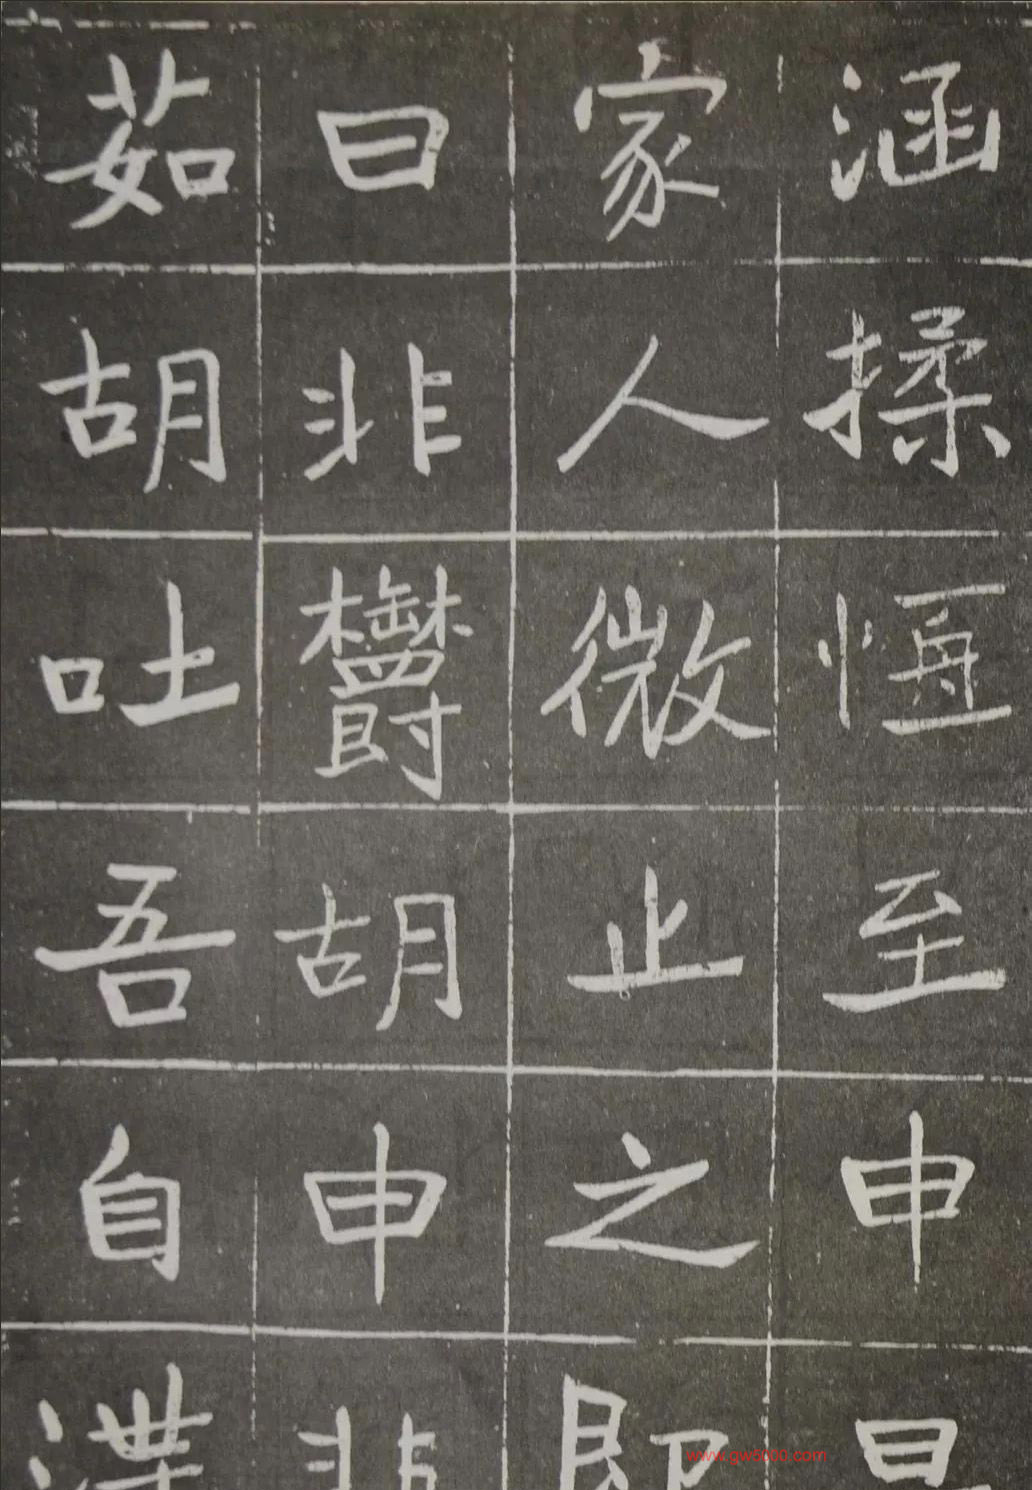 涵揉恆至申
家人微止之即
曰非欝胡申非
茹胡吐吾自澤
www.gw5000.com